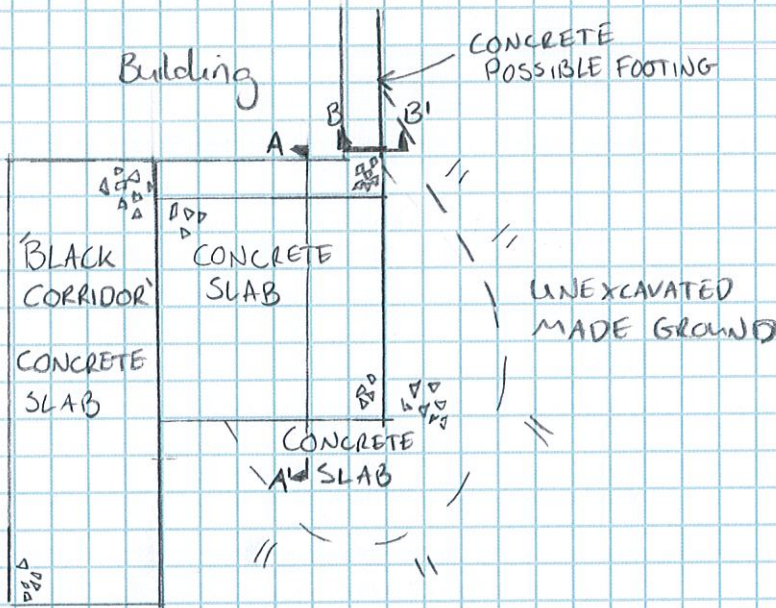 Building
CONCRETE
POSSIBLE FOOTING
B
B'
A
'BLACK
CORRIDOR'
CONCRETE
SLAB
CONCRETE
SLAB
UNEXCAVATED
MADE GROUND
CONCRETE
SLAB
A'